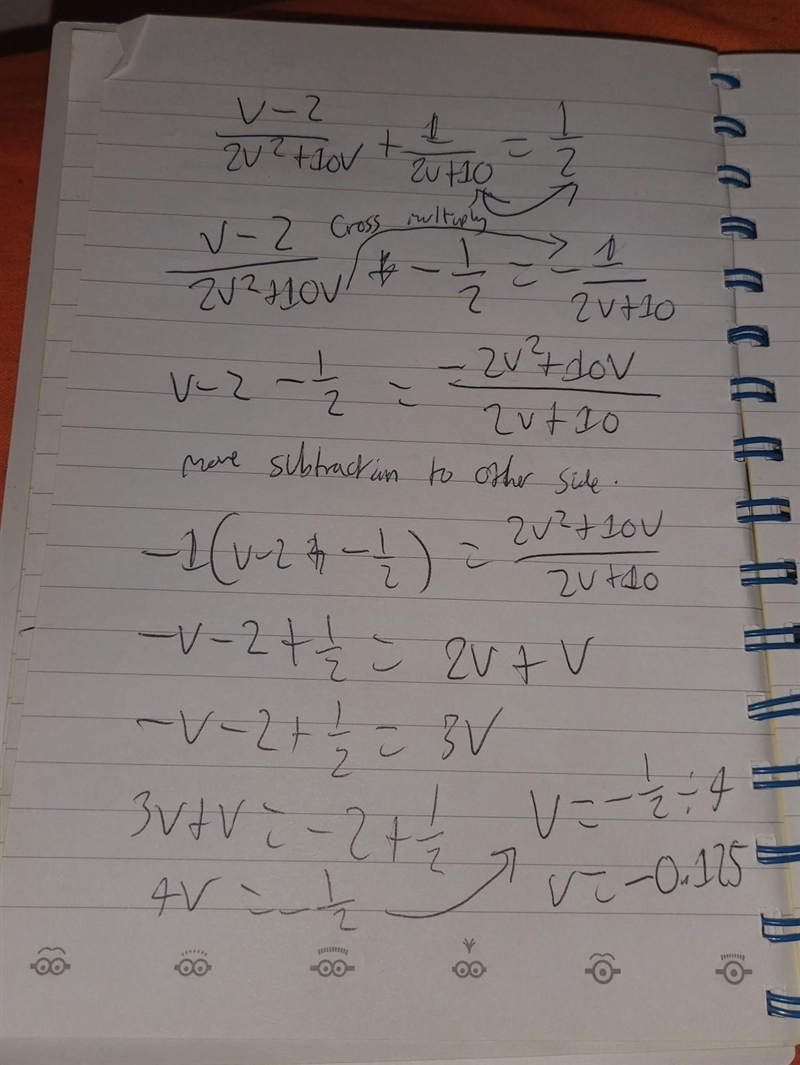 v-2/2v²+10v + 1/2v+10 = 1/2
Cross multiply
v-2/2v²+10v - 1/2 = -1/2v+10
v-2 - 1/2 = -2v²+10v/2v+10
move subtraction to other side.
-1(v-2 - 1/2) = 2v²+10v/2v+10
-v-2+1/2 = 2v+v
-v-2+1/2 = 3v
3v+v = -2+1/2
4v = -1/2
v = -1/2÷4
v = -0.125